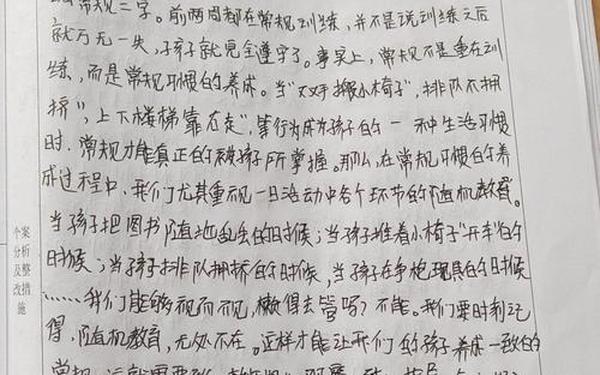 常规二字。前两周都在常规训练，并不是说训练之后
就万无一失，孩子就完全遵守了。事实上，常规不是重在训
练，而是常规习惯的养成。当“双手搬小椅子”，排队不拥
挤”，上下楼梯靠右走”，等行为成为孩子的一种生活习惯
时，常规才能真正的被孩子所掌握。那么，在常规习惯的养
成过程中，我们尤其重视一日活动中各个环节的随机教育。
当孩子把图书随地乱丢的时候；当孩子推着小椅子“开车”的
时候；当孩子排队拥挤的时候，当孩子在争抢玩具的时候
……我们能够视而不见，懒得去管吗？不能。我们要时刻记
得，随机教育，无处不在。这样才能让我们的孩子养成一致的
常规，这就需要
个案
分析
及整
改措
施